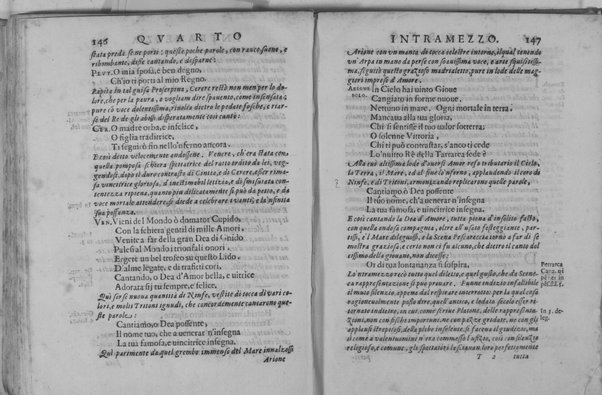 146 QVARTO
stata preda se ne portò: queste poche parole, con rauco suono, e
ribombante, disse cantando, e disparue:
PLVT. O mia sposa, e ben degno,
Ch'io ti porti al mio Regno.
Rapita in tal guisa Proserpina, Cerere restò non men per lo do-
lore, che per la paura, o vogliam dire spauento, come insensata;
pure cò voce dolentissima, riuolta dietro le pedate fosche, e riar-
se del Re de gli abissi disperatamente così cantò:
CER. O madre orba, e infelice,
O figlia traditrice,
Ti seguirò fin nello'nferno ancora.
E così detto velocemente andossene, Venere, ch'era stata con
quella pomposa schiera spettatrice del ratto ordito da lei, veg-
gendosi, dopo il duro contrasto di Cintia, e di Cerere, esser rima-
sa vincitrice gloriosa, d'intieissima letizia, e di smisurata con-
tentezza ripiena, quanto piu delicatamente si può da diuina, non
voce mortale attendere, si diede a celebrare i vanti, e la'nfinita
sua possanza.
VEN. Vieni del Mondo ò domator Cupido,
Con la schiera gentil di mille Amori,
Venite a far della gran Dea di Gnido
Palesi al Mondo i trionfali onori.
Ergete un bel trofeo su questo Lido,
D'alme legate, e di trafitti cori,
Cantando, o Dea d'Amor bella, e vitrice
Adorata sij tu sempre, e felice.
Quì sorse nuoua quantità di Ninfe, vestite di tocca di vari co-
lori, e molti Tritoni ignudi, che concordemente cantarono que-
ste parole:
Cantiamo, o Dea possente,
Il nome tuo, che a uenerar n'insegna
La tua famosa, e uincitrice insegna.
Quì parimente da quel grembo immenso del Mare innalzossi
Arione
INTRAMEZZO. 147
Arione con vn manto di tocca celestre intorno, il qual tenendo
vn'Arpa in mano da perse con soauissima voce, e arte squisitissi-
ma, seguitò questo grazioso madrialetto, pure in lode delle mag-
giori imprese d'Amore.
Arione
solo.
In Cielo hai uinto Gioue
Cangiato in forme nuoue,
Nettuno in mare. Ogni mortale in terra,
Mancaua alla tua gloria,
Chi si sentisse il tuo ualor sotterra,
O somma tua uittoria,
Chi ti può contrastar, s'anco ti cede
Lo'nuitto Rè della Tartarea sede?
Alla cui altissima lode d'honorsi Amor reso tributario il Cielo,
la Terra, il Mare, ed al fine lo'nferno, applaudendo il coro di
Ninfe, e di Tritoni, armonizando replicarono quelle parole,
Cantiamo ò Dea possente
Il tuo nome, ch'a uenerar n'insegna
La tua famosa, e uincitrice insegna.
E così cantando la Dea d'Amore, tutta piena d'insolito fasto,
con quella ondosa compagna, oltre all'usato festeggianti, par-
tissi, e'l Mare dileguossi, e la Scena Pescareccia tornò a far di se
mostra graziosa, e certo non ci fu alcuno, che dietro al canto del
cissimo della giouane, non dicesse:
Or di tua lontananza si sospira,
Petrarca
Canz. ut
pictur in
poesis.
Lo'ntramezzo recò tutto quel diletto, e quel gusto, che da Scena,
ca rappresentazione si può prouare. Funne indizio infallibile
il muto silenzio, appena mai dal respirare interrotto: per lo qual così
ragioneuolmente posso dire, quell'antico, e lodato secolo esser ri-
tornato indietro, in cui come scriue Platone, delle rappresenta-
In 3. de
leg.
zioni, non con fischi importuni, ne con pazze grida, ne con
applausi strepitosi della plebe insolente, si facea il giudizio, ma sì
come a valentuomini n'era commesso l'ufizio, così con silenzio
religioso, e comune, gli spettatori lo scian loro perfettamente
T 2 tutta